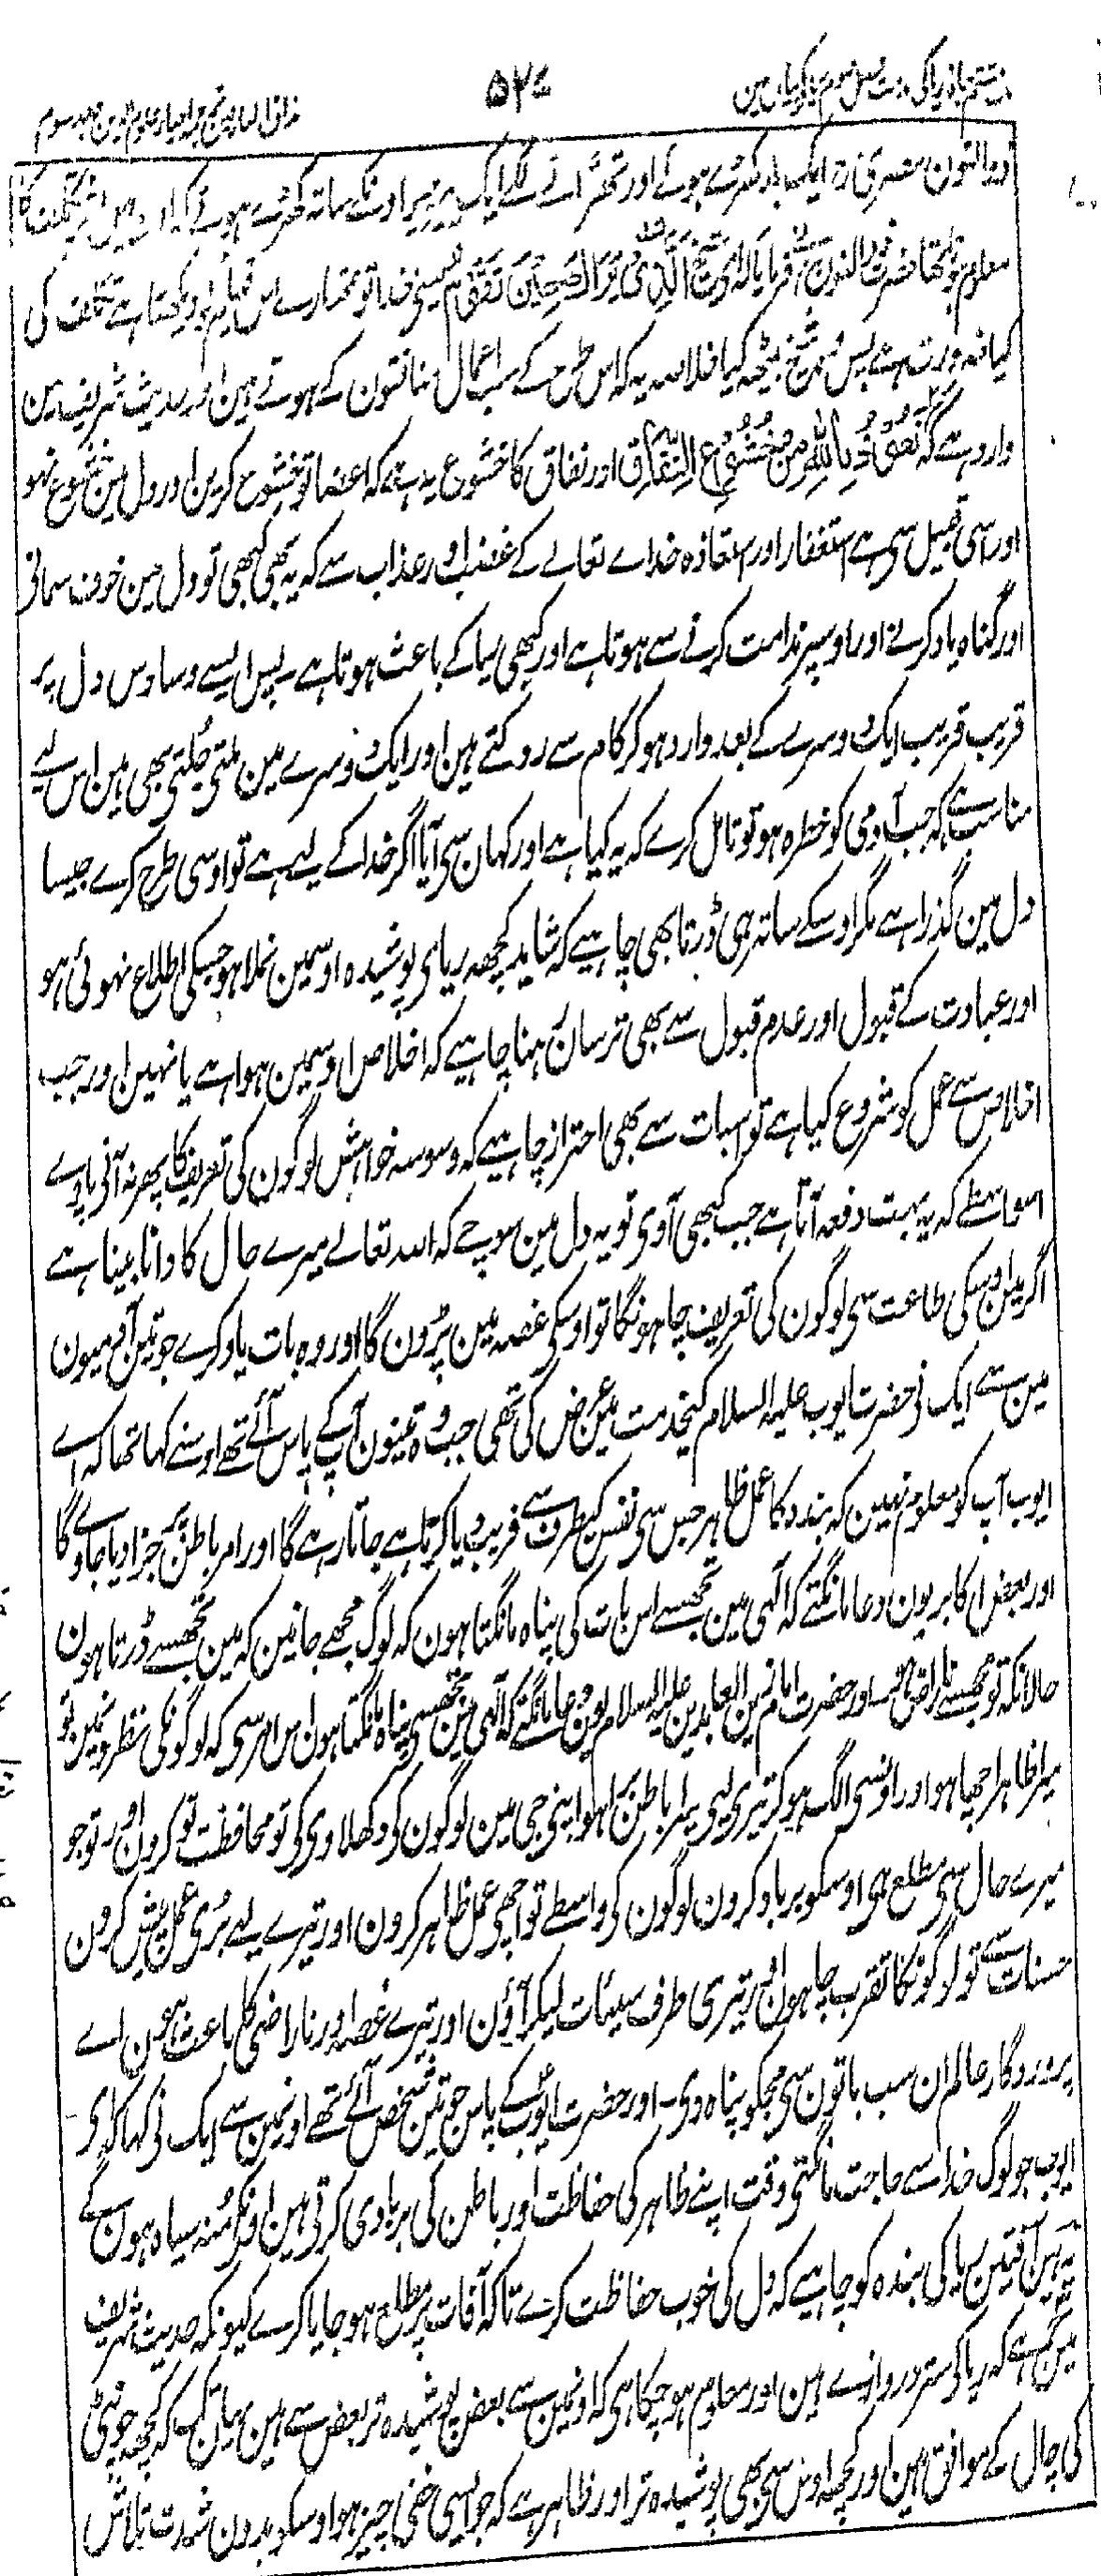 ۵۲۷
ذوالنون مصری رح ایک بار کھڑے ہوئے اور تھرانے لگے ایک پیر اونکے ساتھ کھڑے ہوئے
معلوم ہوتا تھا حضرت ذوالنون نے فرمایا کہ اے شیخ الَّذِي يَرَاكَ حِيْنَ تَقُوْمُ یعنی خدا تو تمھارے اس قیام کو دیکھتا ہے تکلف کی
کیا ضرورت ہے پس وہ شیخ بیٹھ گیا خلاصہ یہ کہ اس طرح کے سب اعمال منافقون کے ہوتے ہین اور حدیث شریف مین
وارد ہے کہ نَعُوْذُ بِاللّٰهِ مِنْ خُشُوْعِ النِّفَاقِ اور نفاق کا خشوع یہ ہے کہ اعضا تو خشوع کرین اور دل مین خشوع نہو
اور اسی قبیل سی ہے استغفار اور استعاذہ خداے تعالے کے غضب اور عذاب سے کہ یہ بھی کبھی تو دل مین خوف سمانی
اور گناہ یاد کرنے اور اوسپر ندامت کرنے سے ہوتا ہے اور کبھی ریا کے باعث ہوتا ہے پس ایسے وساوس دل پر
قریب قریب ایک دوسرے کے بعد وارد ہو کر کام سے روکتے ہین اور ایک دوسرے مین ملتی جلتی بھی ہین اس لیے
مناسب ہے کہ جب آدمی کو خطرہ ہو تو تامل کرے کہ یہ کیا ہے اور کہان سی آیا اگر خدا کے لیے ہے تو اوسی طرح کرے جیسا
دل مین گذرا ہے مگر اوسکے ساتھ ہی ڈرتا بھی چاہیے کہ شاید کچھ ریای پوشیدہ اوسمین نملا ہو جسکی اطلاع نہوئی ہو
اور عبادت کے قبول اور عدم قبول سے بھی ترسان رہنا چاہیے کہ اخلاص اوسمین ہوا ہے یا نہین اور جب
اخلاص سے عمل کو شروع کیا ہے تو اسبات سے بھی احتراز چاہیے کہ وسوسہ خواہش لوگون کی تعریف کا پھر نہ آنی پاوے
اسواسطے کہ یہ بہت دفعہ آتا ہے جب کبھی آوی تو یہ دل مین سوچے کہ اللہ تعالے میرے حال کا دانا بینا ہے
اگر مین اوسکی طاعت سی لوگون کی تعریف چاہونگا تو اوسکی غصہ مین پڑون گا اور وہ بات یاد کرے جو تین آدمیون
مین سے ایک نے حضرت ایوب علیہ السلام کیخدمت مین عرض کی تھی جب وہ تینون آپ کے پاس آئے تھے اوسنے کہا تھا کہ اے
ایوب آپ کو معلوم نہین کہ بندہ کا عمل ظاہر جس سی نفس کیطرف سے فریب دیا کرتا ہے جاتا رہے گا اور امر باطن پر جزا دیا جاوے گا
اور بعض اکابر یون دعا مانگتے کہ الٰہی مین تجھسے اس بات کی پناہ مانگتا ہون کہ لوگ مجھے جانین کہ مین تجھسے ڈرتا ہون
حالانکہ تو مجھسے ناراض ہو اور حضرت امام زین العابدین علیہ السلام یون دعا مانگتے کہ الٰہی مین تجھسی پناہ مانگتا ہون اس امر سی کہ لوگونکی نظرونمین تو
میرا ظاہر اچھا ہو اور اونسی الگ ہو کر تیری لیی میرا باطن برا ہو اپنی جی مین لوگون کو دکھلاوی کی تو محافظت تو کرون اور تو جو
میرے حال سی مطلع ہی اوسکو برباد کرون لوگون کی واسطے تو اچھی عمل ظاہر کرون اور تیرے لیے بری عمل پیش کرون
حسنات سے تو لوگونکا تقرب چاہون اور تیری طرف سیئات لیکر آؤن اور تیرے غصہ اور ناراضی کا باعث ہون اے
پروردگار عالم ان سب باتون سی مجکو پناہ دی۔ اور حضرت ایوب کے پاس جو تین شخص آئے تھے اونمین سے ایک نی کہا کہ ای
ایوب جو لوگ خدا سے حاجت مانگتی وقت اپنے ظاہر کی حفاظت اور باطن کی بربادی کرتی ہین اونکے منہ سیاہ ہون گے
یہ ہین آفتین ریا کی بندہ کو چاہیے کہ دل کی خوب حفاظت کرے تاکہ آفات پر مطلع ہو جایا کرے کیونکہ حدیث شریف
مین ہے کہ ریا کو ستر دروازے ہین اور معلوم ہو چکا ہی کہ اونمین سے بعض پوشیدہ تر بعض سے ہین یہان تک کہ کچھ چونٹی
کی چال کے موافق ہین اور کچھ اوس سی بھی پوشیدہ تر اور ظاہر ہے کہ جو ایسی خفی چیز ہو اوسکو بدون شدت تلاش